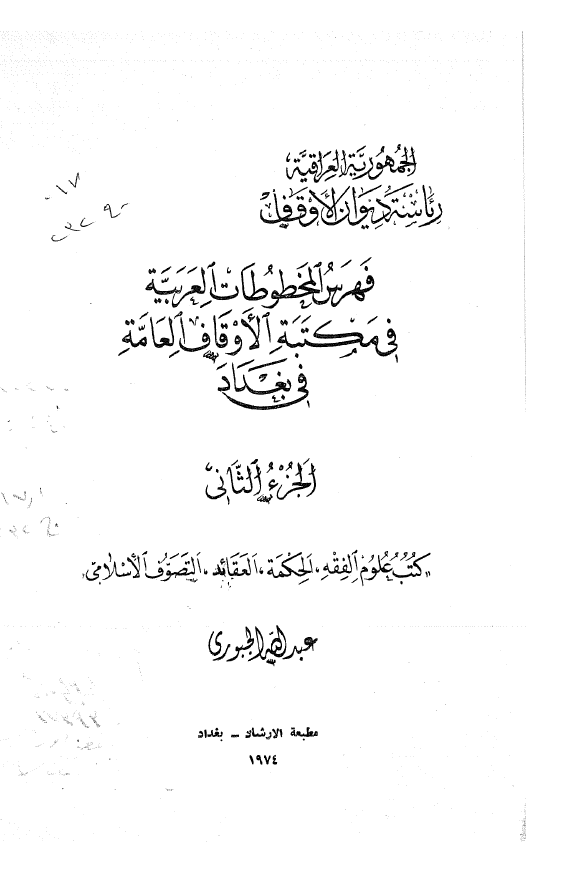 الجمهورية العراقية
رئاسة ديوان الأوقاف
فهرس المخطوطات العربية
في مكتبة الأوقاف العامة
في بغداد
الجزء الثاني
«كتب علوم الفقه، الحكمة، العقائد، التصوف الأسلامي»
عبد الله الجبوري
مطبعة الارشاد – بغداد
١٩٧٤